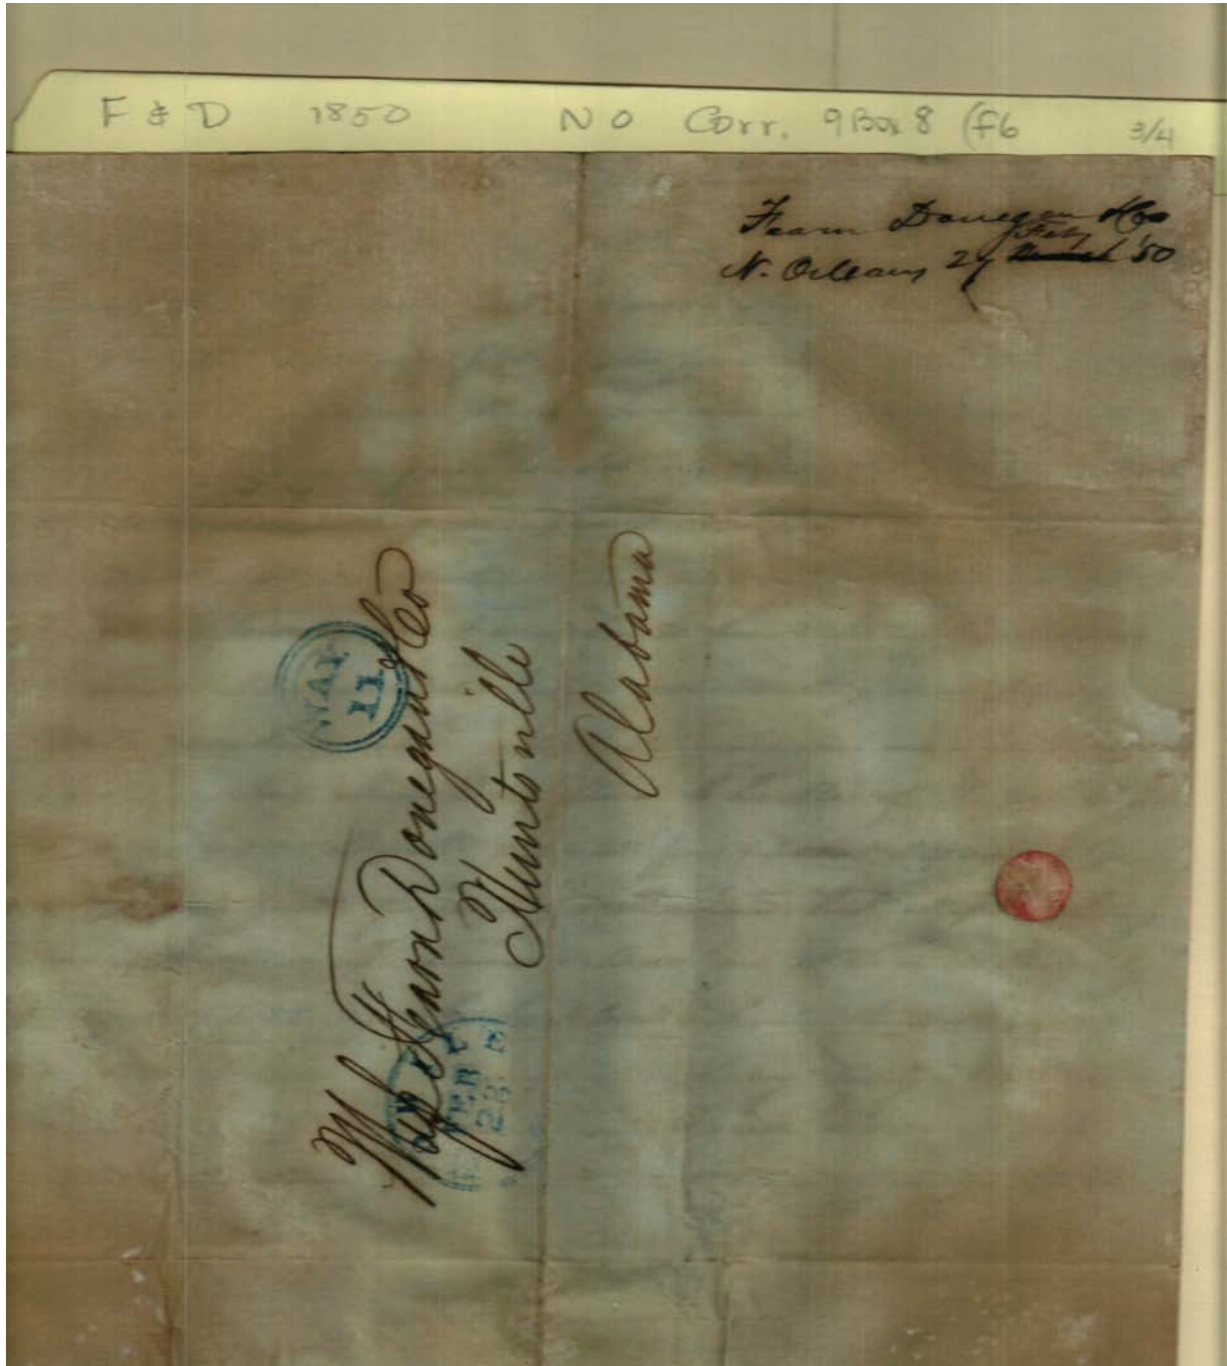 F & D 1850 NO Corr. 9 Box 8 (f6 3/4
Fearn Donegan & Co
N. Orleans 27 Feby '50
WAY
11
Messrs Fearn Donegan & Co
Huntsville
Alabama
FEB
28